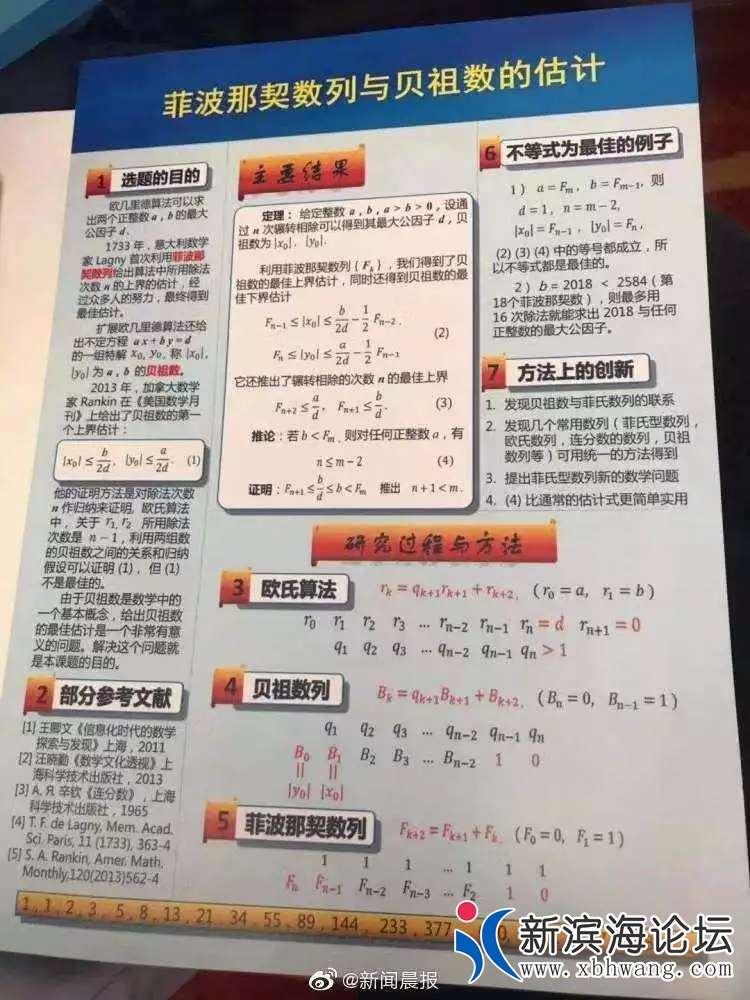 菲波那契数列与贝祖数的估计
1 选题的目的
欧几里德算法可以求
出两个正整数 a , b 的最大
公因子 d.
1733 年，意大利数学
家 Lagny 首次利用菲波那
契数列给出算法中所用除法
次数 n 的上界的估计，经
过众多人的努力，最终得到
最佳估计。
扩展欧几里德算法还给
出不定方程 ax+by=d
的一组特解 x₀, y₀, 称 |x₀|,
|y₀| 为 a , b 的贝祖数。
2013 年，加拿大数学
家 Rankin 在《美国数学月
刊》上给出了贝祖数的第一
个上界估计：
|x₀| ≤ b/2d, |y₀| ≤ a/2d. (1)
他的证明方法是对除法次数
n 作归纳来证明, 欧氏算法
中，关于 r₁, r₂ 所用除法
次数是 n − 1，利用两组数
的贝祖数之间的关系和归纳
假设可以证明 (1)，但 (1)
不是最佳的。
由于贝祖数是数学中的
一个基本概念，给出贝祖数
的最佳估计是一个非常有意
义的问题。解决这个问题就
是本课题的目的。
2 部分参考文献
[1] 王卿文《信息化时代的数学
探索与发现》上海，2011
[2] 汪晓勤《数学文化透视》上
海科学技术出版社，2013
[3] А. Я. 辛钦《连分数》，上海
科学技术出版社，1965
[4] T. F. de Lagny, Mem. Acad.
Sci. Paris, 11 (1733), 363-4
[5] S. A. Rankin, Amer. Math.
Monthly,120(2013)562-4
主要结果
定理：给定整数 a , b , a > b > 0，设通
过 n 次辗转相除可以得到其最大公因子 d，贝
祖数为 |x₀|，|y₀|.
利用菲波那契数列 {Fₖ}，我们得到了贝
祖数的最佳上界估计，同时还得到贝祖数的最
佳下界估计
Fₙ₋₁ ≤ |x₀| ≤ b/2d − 1/2 Fₙ₋₂ ,
(2)
Fₙ ≤ |y₀| ≤ a/2d − 1/2 Fₙ₋₁
它还推出了辗转相除的次数 n 的最佳上界
Fₙ₊₂ ≤ a/d, Fₙ₊₁ ≤ b/d. (3)
推论：若 b < Fₘ, 则对任何正整数 a，有
n ≤ m − 2 (4)
证明：Fₙ₊₁ ≤ b/d ≤ b < Fₘ 推出 n + 1 < m .
6 不等式为最佳的例子
1 ) a = Fₘ , b = Fₘ₋₁, 则
d = 1, n = m − 2,
|x₀| = Fₙ₋₁ , |y₀| = Fₙ ,
(2) (3) (4) 中的等号都成立，所
以不等式都是最佳的。
2 ) b = 2018 < 2584 ( 第
18个菲波那契数 )，则最多用
16 次除法就能求出 2018 与任何
正整数的最大公因子。
7 方法上的创新
1. 发现贝祖数与菲氏数列的联系
2. 发现几个常用数列 ( 菲氏型数列，
欧氏数列，连分数的数列，贝祖
数列等 ) 可用统一的方法得到
3. 提出菲氏型数列新的数学问题
4. (4) 比通常的估计式更简单实用
研究过程与方法
3 欧氏算法 rₖ = qₖ₊₁rₖ₊₁ + rₖ₊₂, ( r₀ = a, r₁ = b )
r₀ r₁ r₂ r₃ … rₙ₋₂ rₙ₋₁ rₙ = d rₙ₊₁ = 0
q₁ q₂ q₃ … qₙ₋₂ qₙ₋₁ qₙ > 1
4 贝祖数列 Bₖ = qₖ₊₁Bₖ₊₁ + Bₖ₊₂, ( Bₙ = 0, Bₙ₋₁ = 1 )
q₁ q₂ q₃ … qₙ₋₂ qₙ₋₁ qₙ
B₀ B₁ B₂ B₃ … Bₙ₋₂ 1 0
|| ||
|y₀| |x₀|
5 菲波那契数列 Fₖ₊₂ = Fₖ₊₁ + Fₖ, ( F₀ = 0, F₁ = 1 )
1 1 1 … 1 1 1
Fₙ Fₙ₋₁ Fₙ₋₂ Fₙ₋₃ … F₂ 1 0
1 , 1 , 2 , 3 , 5 , 8 , 13 , 21 , 34 , 55 , 89 , 144 , 233 , 377
新滨海论坛
www.xbhwang.com
@新闻晨报